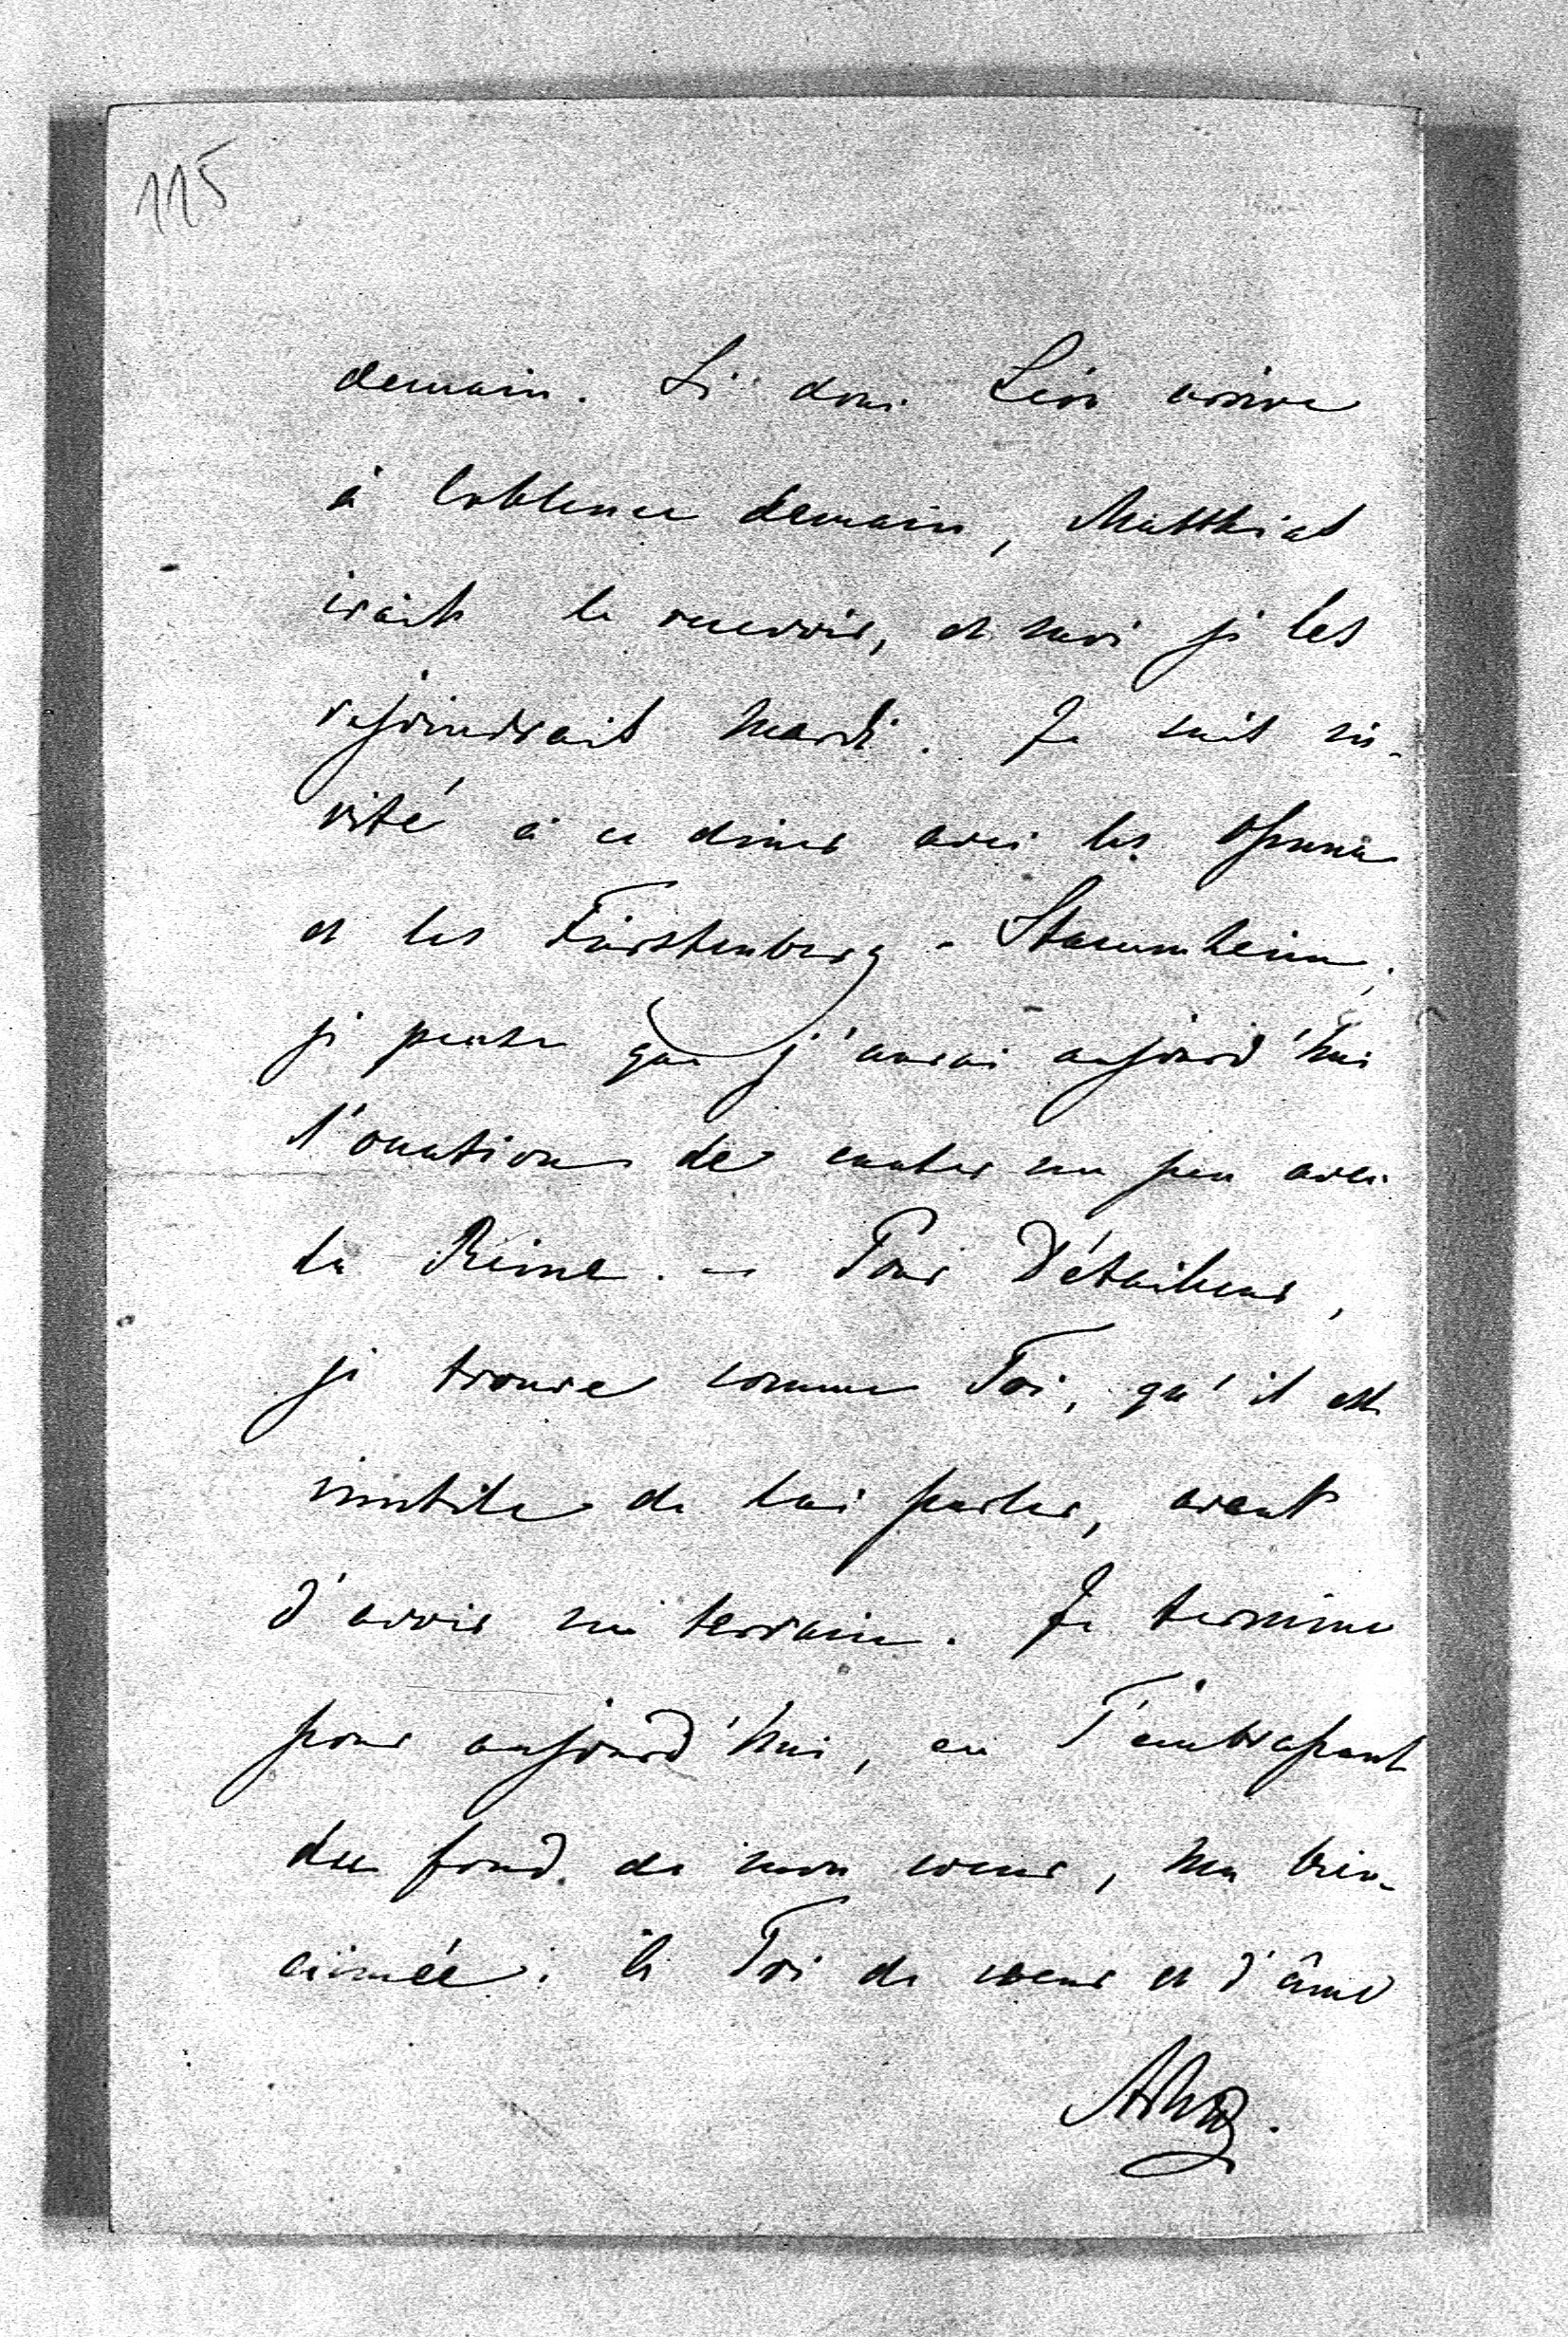 115
demain. Si donc Léon arrive
à Coblence demain, Matthias
irait le recevoir, et moi je les
rejoindrait mardi. Je suis in-
vité à ce diner avec les Ossuna
et les Fürstenberg - Stammheim.
je pense que j'aurai aujourd'hui
l'occation de causer un peu avec
la Reine. — Pour Détailleur,
je trouve comme Toi, qu'il est
inutile de lui parler, avant
d'avoir un terrain. Je termine
pour aujourd'hui, en T'embrassant
du fond de mon coeur, ma bien-
aimée. à Toi de coeur et d'âme